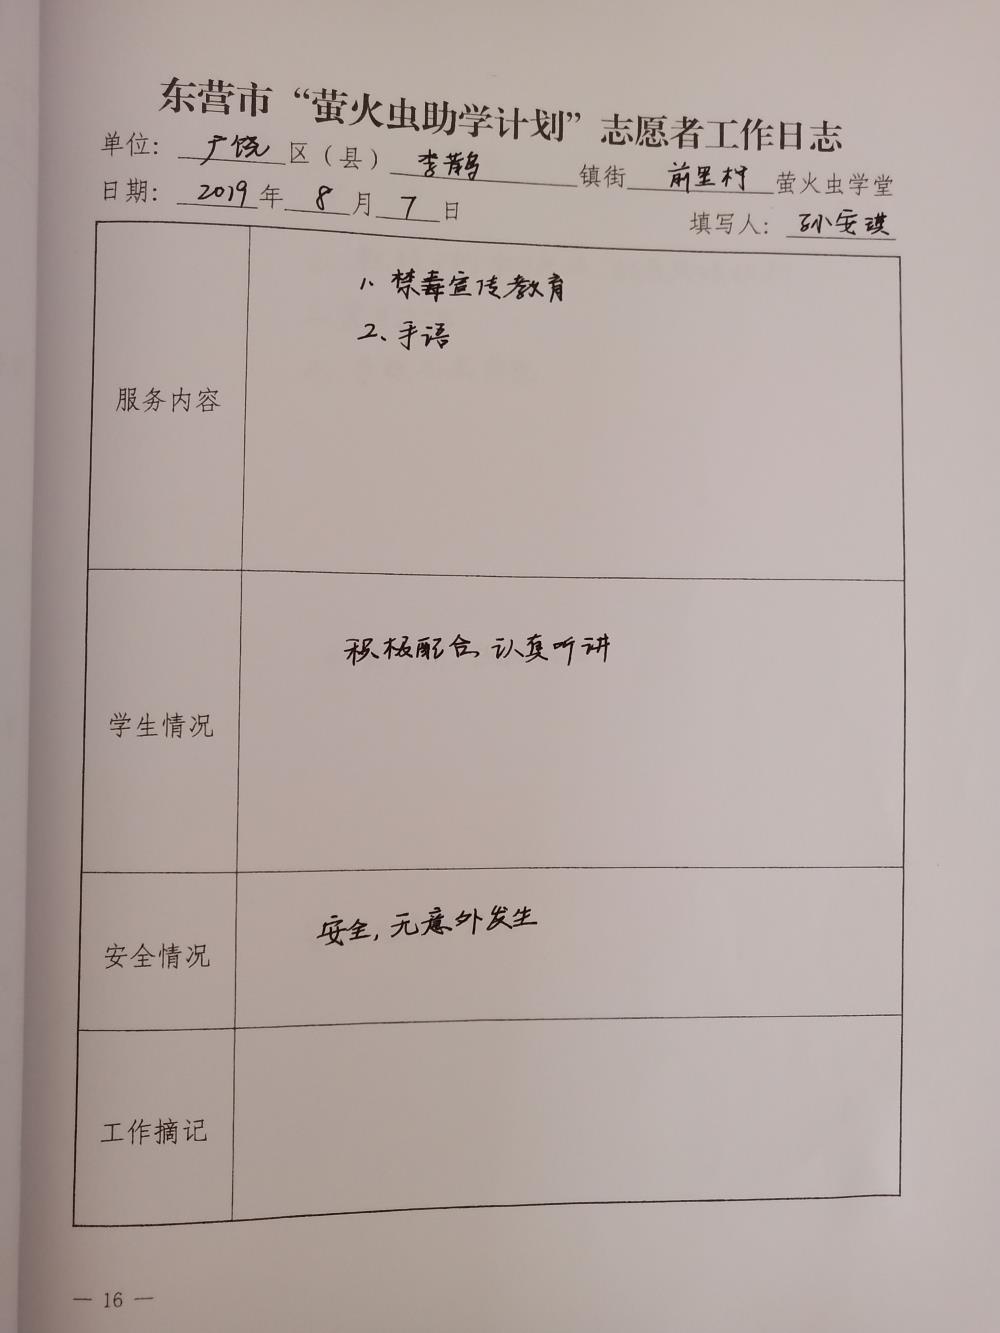 东营市“萤火虫助学计划”志愿者工作日志
单位：广饶区（县）李鹊镇街前里村萤火虫学堂
日期：2019年8月7日
填写人：孙安琪
服务内容
1、禁毒宣传教育
2、手语
学生情况
积极配合，认真听讲
安全情况
安全，无意外发生
工作摘记
— 16 —